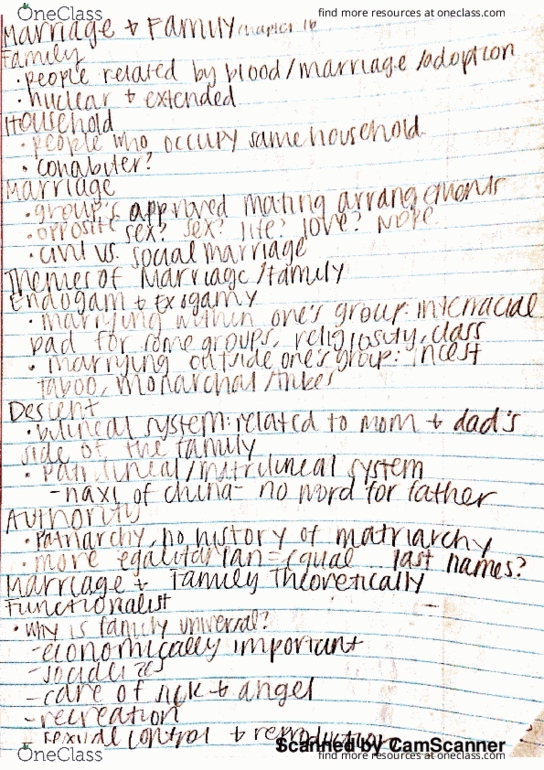 OneClass
find more resources at oneclass.com
Marriage + Family chapter 16
Family
• people related by blood/marriage/adoption
• nuclear + extended
Household
• people who occupy same household
• conabuter?
Marriage
• group's approved mating arrangements
• opposite sex? sex? life? love? Nope.
• civil vs. social marriage
Themes of Marriage/family
Endogam + Exogamy
• marrying within one's group: interracial
bad for some groups, religiosity, class
• marrying outside one's group: incest
taboo, monarchal
Descent
• bilineal system: related to mom + dad's
side of the family
• Patrilineal/matrilineal system
- naxi of china - no word for father
Authority
• Patriarchy, no history of matriarchy
• more egalitarian = equal .. last names?
Marriage + family Theoretically
Functionalist
• Why is family universal?
- economically important
- socializes
- care of sick + angel
- recreation
- sexual control + reproduction
Scanned by CamScanner
OneClass
find more resources at oneclass.com